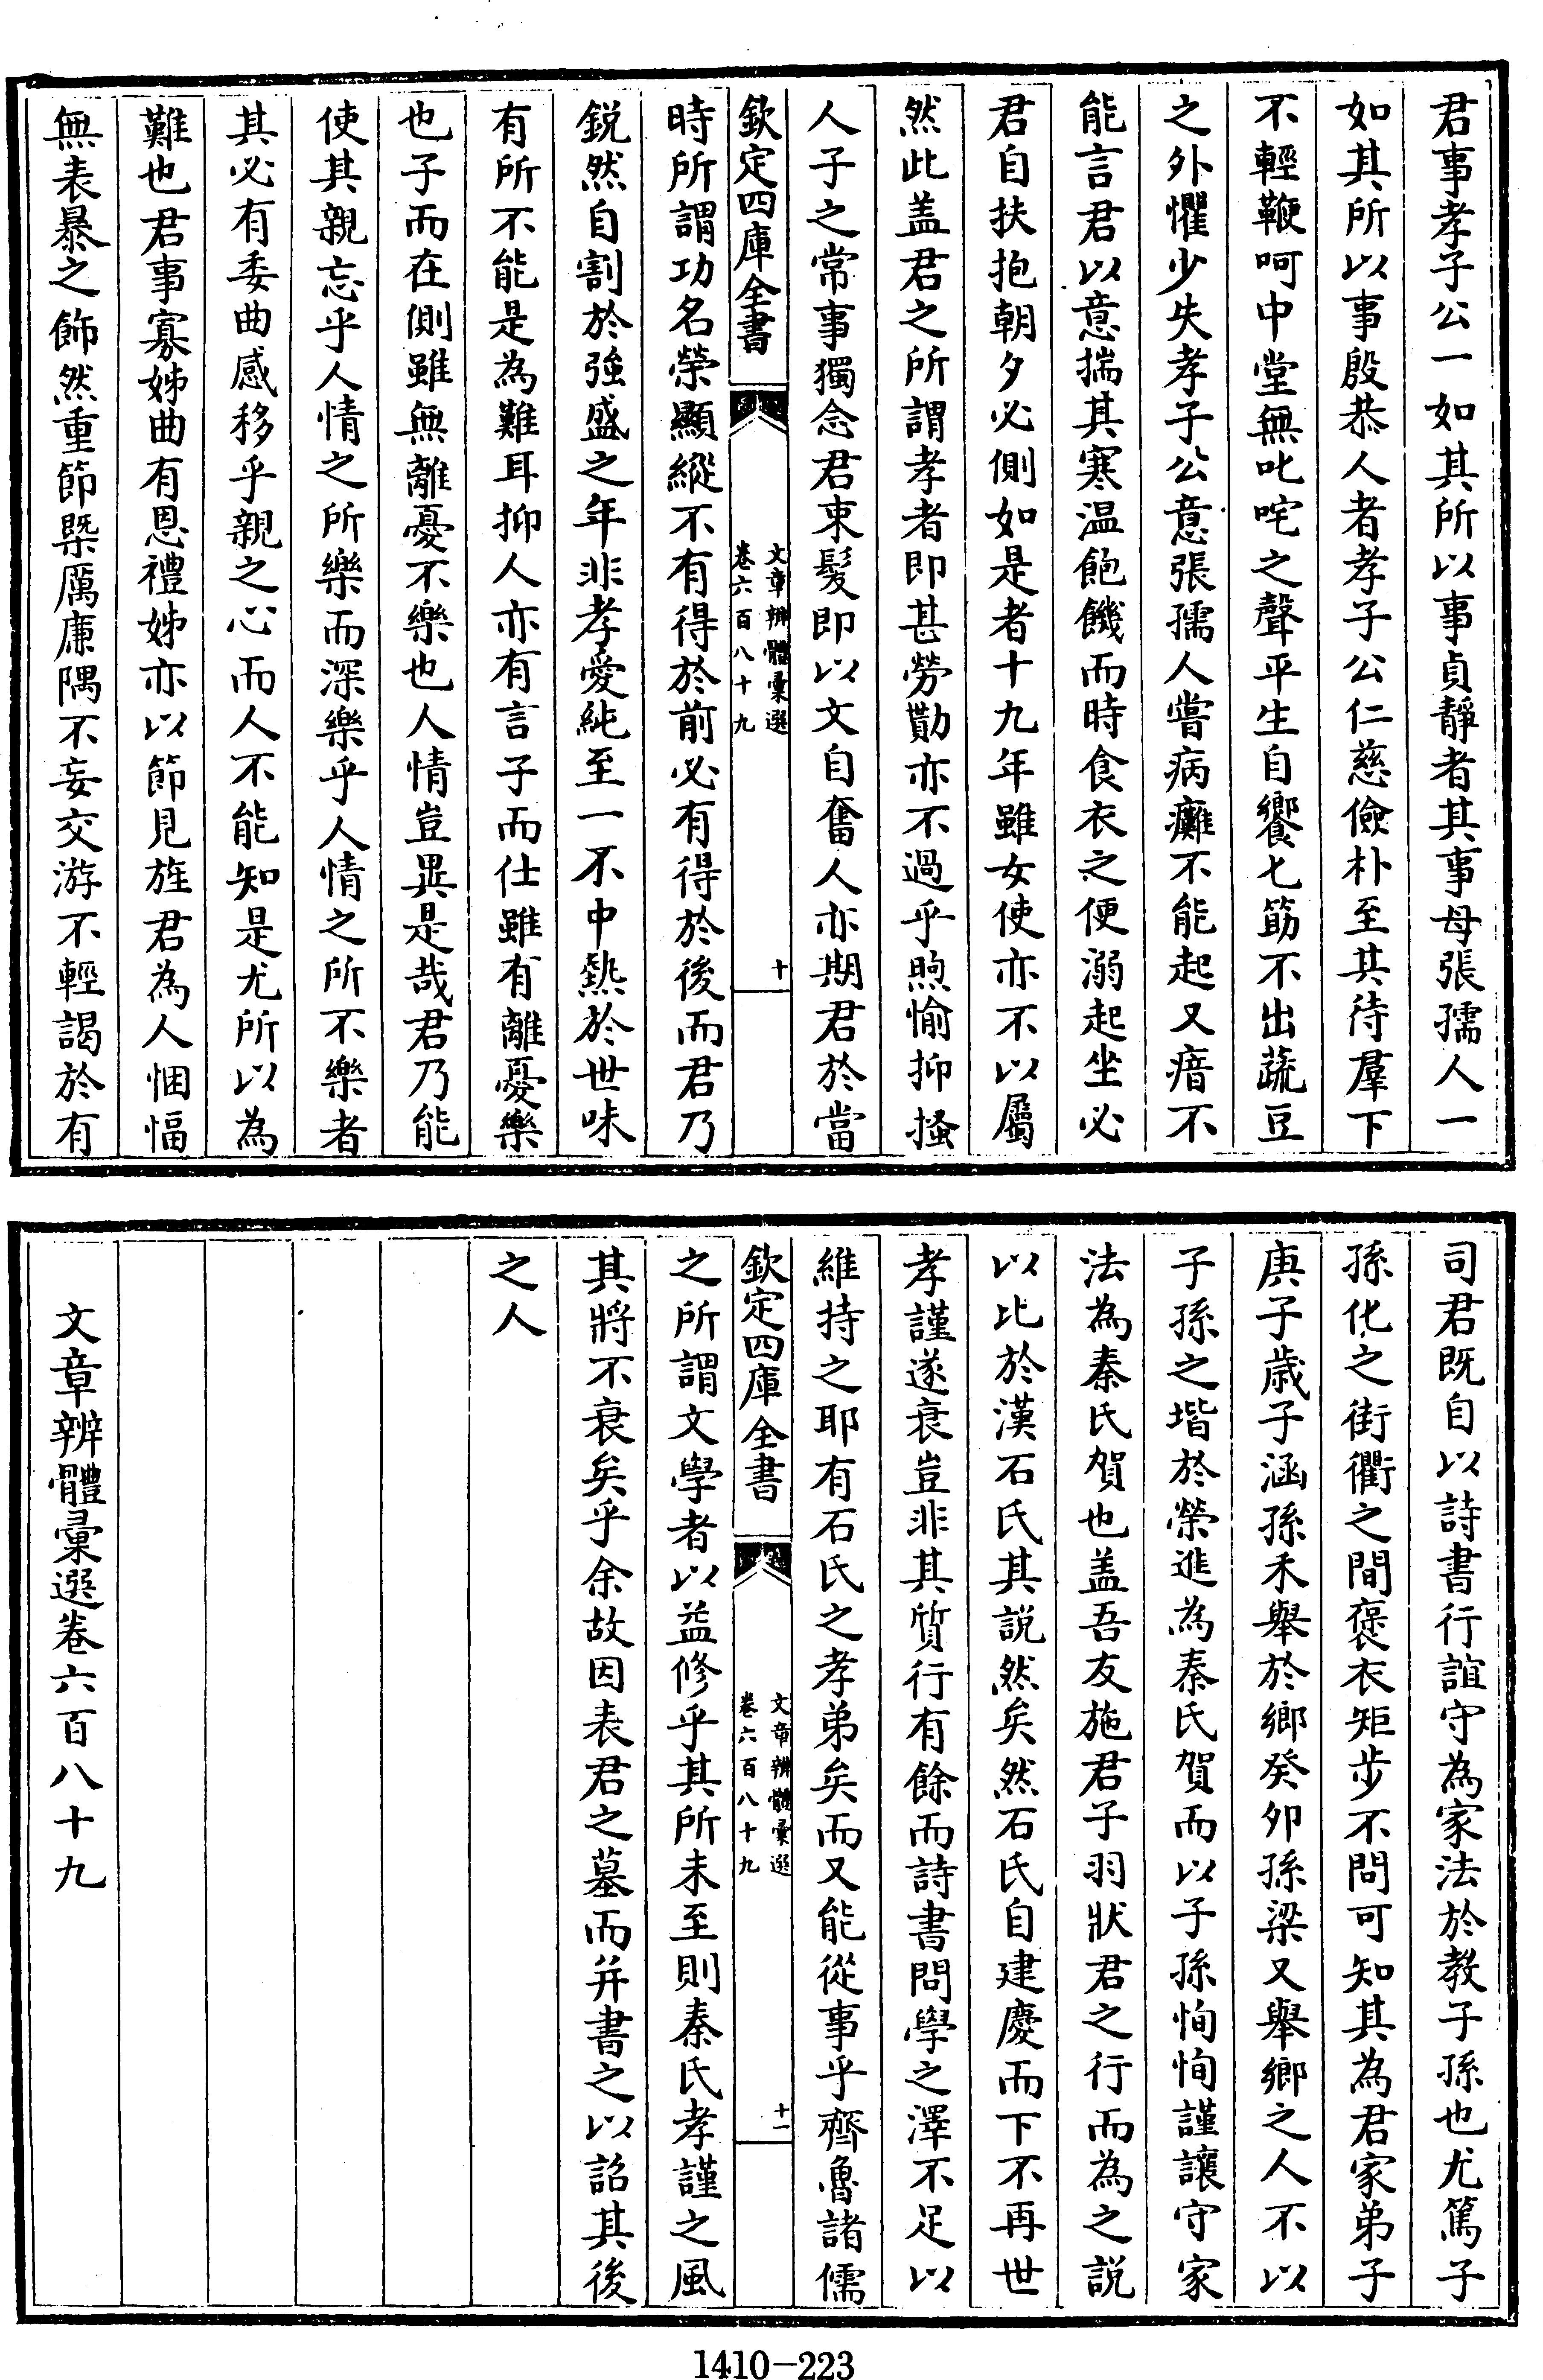 君事孝子公一如其所以事貞靜者其事母張孺人一
如其所以事殷恭人者孝子公仁慈儉朴至其待羣下
不輕鞭呵中堂無叱咤之聲平生自饗七筯不出蔬豆
之外懼少失孝子公意張孺人嘗病癱不能起又瘖不
能言君以意揣其寒温飽饑而時食衣之便溺起坐必
君自扶抱朝夕必側如是者十九年雖女使亦不以屬
然此盖君之所謂孝者即甚勞勩亦不過乎煦愉抑搔
人子之常事獨念君束髮即以文自奮人亦期君於當
欽定四庫全書
文章辨體彙選
卷六百八十九
十
時所謂功名榮顯縱不有得於前必有得於後而君乃
鋭然自割於強盛之年非孝愛純至一不中熱於世味
有所不能是為難耳抑人亦有言子而仕雖有離憂樂
也子而在側雖無離憂不樂也人情豈異是哉君乃能
使其親忘乎人情之所樂而深樂乎人情之所不樂者
其必有委曲感移乎親之心而人不能知是尤所以為
難也君事寡姊曲有恩禮姊亦以節見旌君為人悃愊
無表暴之飾然重節槩厲廉隅不妄交游不輕謁於有
司君既自以詩書行誼守為家法於教子孫也尤篤子
孫化之街衢之間褒衣矩步不問可知其為君家弟子
庚子歲子涵孫禾舉於鄉癸卯孫梁又舉鄉之人不以
子孫之堦於榮進為秦氏賀而以子孫恂恂謹讓守家
法為秦氏賀也盖吾友施君子羽狀君之行而為之説
以比於漢石氏其説然矣然石氏自建慶而下不再世
孝謹遂衰豈非其質行有餘而詩書問學之澤不足以
維持之耶有石氏之孝弟矣而又能從事乎齊魯諸儒
欽定四庫全書
文章辨體彙選
卷六百八十九
十一
之所謂文學者以益修乎其所未至則秦氏孝謹之風
其將不衰矣乎余故因表君之墓而并書之以詔其後
之人
文章辨體彙選卷六百八十九
1410-223